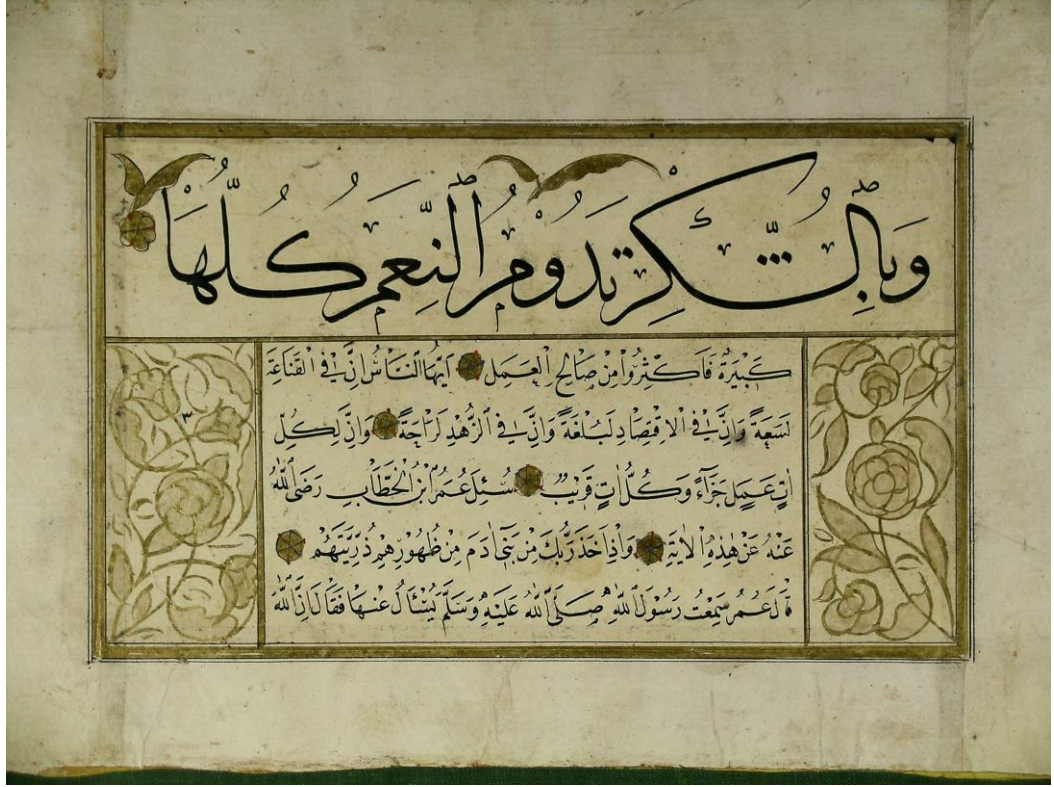 وَبِالشُّكْرِ تَدُومُ النِّعَمُ كُلُّهَا
كَبِيرَةٌ فَاَكْثِرُوا مِنْ صَالِحِ الْعَمَلِ اَيُّهَا النَّاسُ اِنَّ فِي الْقَنَاعَةِ
لَسَعَةً وَاِنَّ فِي الْاِقْتِصَادِ لَبُلْغَةً وَاِنَّ فِي الزُّهْدِ لَرَاحَةً وَاِنَّ لِكُلِّ
عَمَلٍ جَزَآءً وَكُلُّ اٰتٍ قَرِيبٌ سُئِلَ عُمَرُ ابْنُ الْخَطَّابِ رَضِيَ اللّٰهُ
عَنْهُ عَنْ هٰذِهِ الْاٰيَةِ وَاِذْ اَخَذَ رَبُّكَ مِنْ بَنِيٓ اٰدَمَ مِنْ ظُهُورِهِمْ ذُرِّيَّتَهُمْ
قَالَ عُمَرُ سَمِعْتُ رَسُولَ اللّٰهِ صَلَّى اللّٰهُ عَلَيْهِ وَسَلَّمَ يُسْئَالُ عَنْهَا فَقَالَ اِنَّ اللّٰهَ